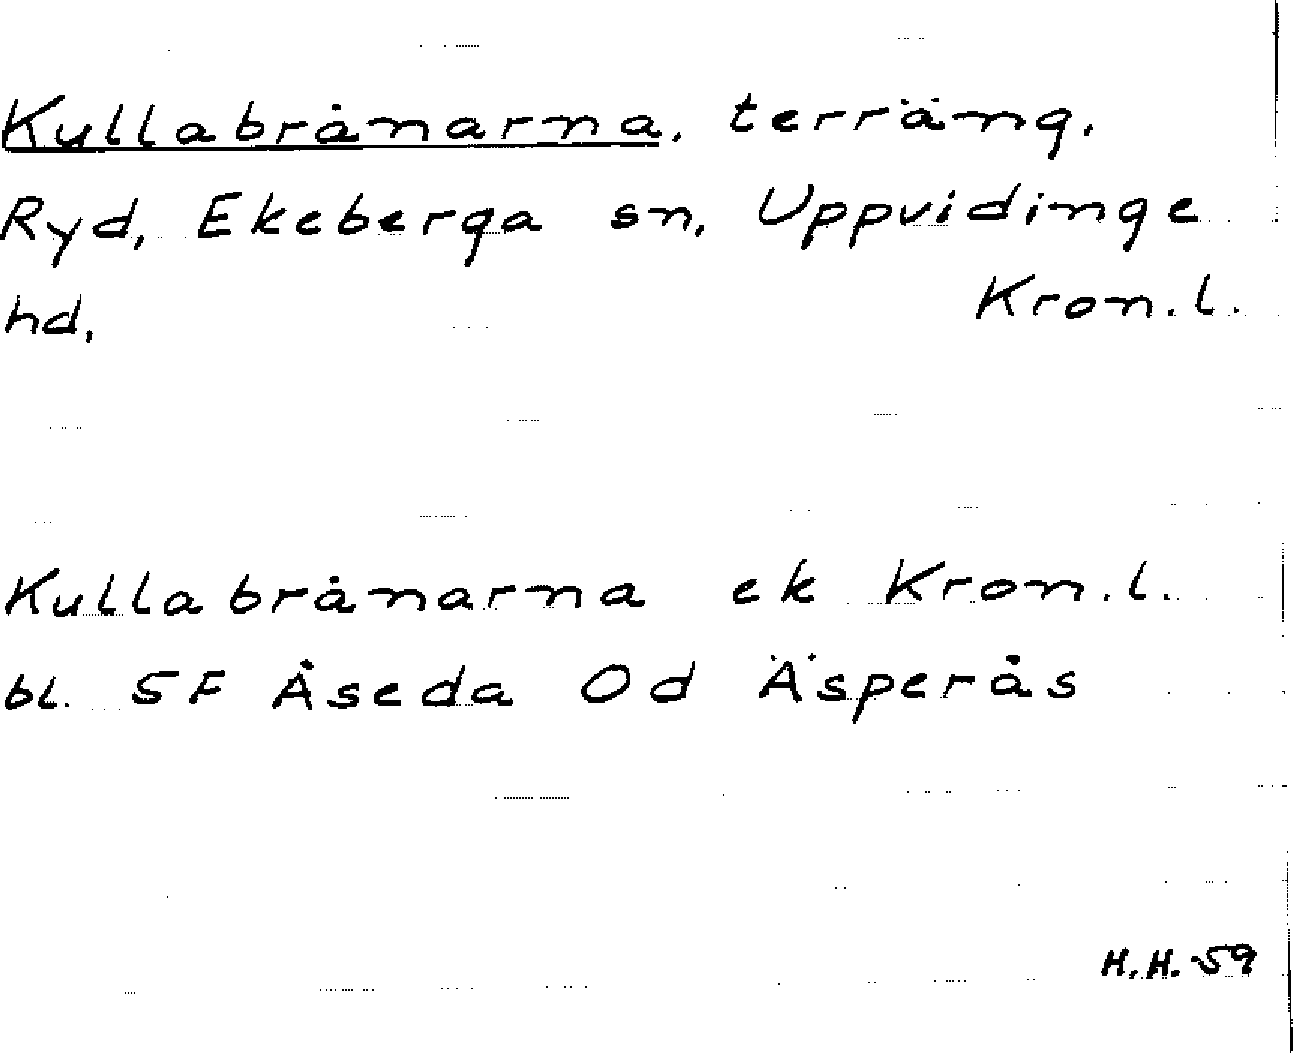 Kullabrånarna, terräng,
Ryd, Ekeberga sn, Uppvidinge
hd, Kron.l.
Kullabrånarna ek Kron.l.
bl. 5F Åseda Od Äsperås
H.H. 59